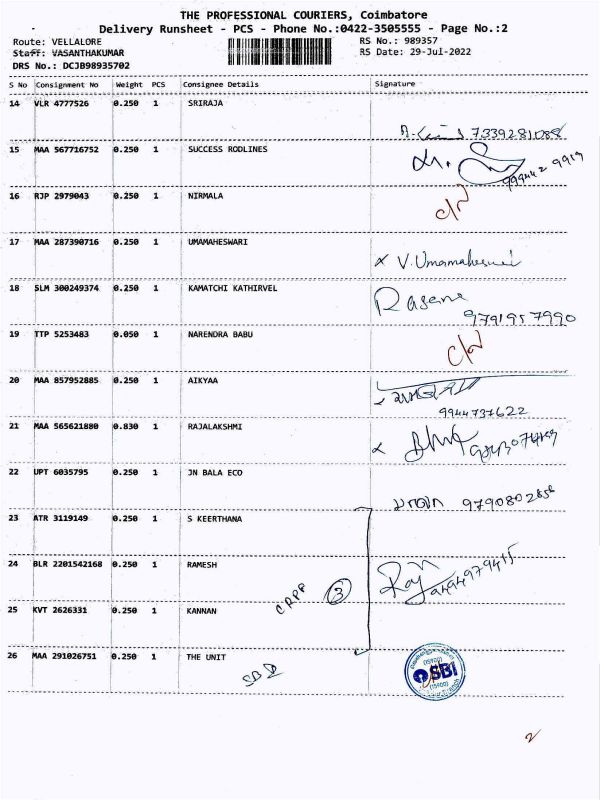 THE PROFESSIONAL COURIERS, Coimbatore
Delivery Runsheet - PCS - Phone No.:0422-3505555 - Page No.:2
Route: VELLALORE
RS No.: 989357
Staff: VASANTHAKUMAR
RS Date: 29-Jul-2022
DRS No.: DCJB98935702
S No Consignment No Weight PCS Consignee Details Signature
14 VLR 4777526 0.250 1 SRIRAJA
7339281088
15 MAA 567716752 0.250 1 SUCCESS RODLINES
999442 9919
16 RJP 2979043 0.250 1 NIRMALA
C/N
17 MAA 287390716 0.250 1 UMAMAHESWARI
x V. Umamaheswari
18 SLM 300249374 0.250 1 KAMATCHI KATHIRVEL
9791957990
19 TTP 5253483 0.050 1 NARENDRA BABU
C/N
20 MAA 857952885 0.250 1 AIKYAA
9944737622
21 MAA 565621880 0.830 1 RAJALAKSHMI
22 UPT 6035795 0.250 1 JN BALA ECO
23 ATR 3119149 0.250 1 S KEERTHANA
24 BLR 2201542168 0.250 1 RAMESH
CRPF 3
25 KVT 2626331 0.250 1 KANNAN
26 MAA 291026751 0.250 1 THE UNIT
SBI
SBI
2